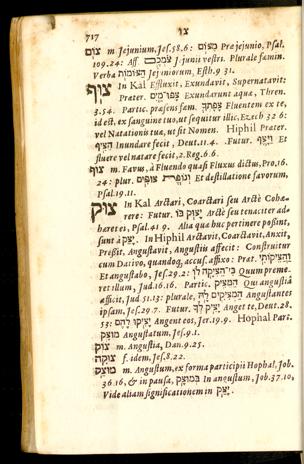 717 צו
צוֹם m Jejunium, Jes. 58.6: מִצּוֹם Præ jejunio, Psal.
109.24: Aff. צֹמְכֶם Jejunii vestri. Plurale femin.
Verba הַצּוֹמוֹת Jejuniorum, Esth. 9 31.
צוּף In Kal Effluxit, Exundavit, Supernatavit:
Prater. צָפוּ מַיִם Exundarunt aquæ, Thren.
3.54. Partic. præsens fæm. Fluentem ex te,
id est, ex sanguine tuo, ut sequitur illic, Ezech 32 6:
vel Natationis tua, ut sit Nomen. Hiphil Præter.
הֵצִיף Inundare fecit, Deut. 11.4. Futur. וַיָּצֶף Et
fluere vel natare fecit, 2. Reg. 6.6.
צוּף m. Favus, à fluendo quasi Fluxus dictus, Pro. 16.
24: plur. וְנֹפֶת צוּפִים Et destillatione favorum,
Psal. 19.11.
צוּק In Kal Arctari, Coarctari seu Arctè Coha-
rere: Futur. יָצוּק בּוֹ Arctè seu tenaciter ad-
haret ei, Psal. 41 9. Alia quæ huc pertinere possint,
sunt à יָצַק. In Hiphil Arctavit, Coarctavit, Anxit,
Pressit, Angustavit, Angustiis affecit: Construitur
cum Dativo, quandoq; accus. affixo: Prat. וַהֲצִיקוֹתִי
Et angustabo, Jes. 29.2: כִּי הֱצִיקָה לּוֹ Quum preme-
ret illum, Jud. 16.16. Partic. הַמֵּצִיק Qui angustiâ
afficit, Jud 51.13: plurale, הַמְּצִיקִים לָהּ Angustantes
ipsam, Jes. 29.7. Futur. יָצִיק לְךָ Anget te, Deut. 28.
53: יָצִיקוּ לָהֶם Angent eos, Jer. 19.9. Hophal Par.
מוּצָק Angustatum, Jes. 9.1.
צוֹק m. Angustia, Dan. 9.25.
צוּקָה f. idem, Jes. 8.22.
מוּצָק m. Angustum, ex forma participii Hophal, Job.
36.16, & in pausa, בְּמוּצָק In angustum, Job. 37.10,
Vide aliam significationem in יָצַק.